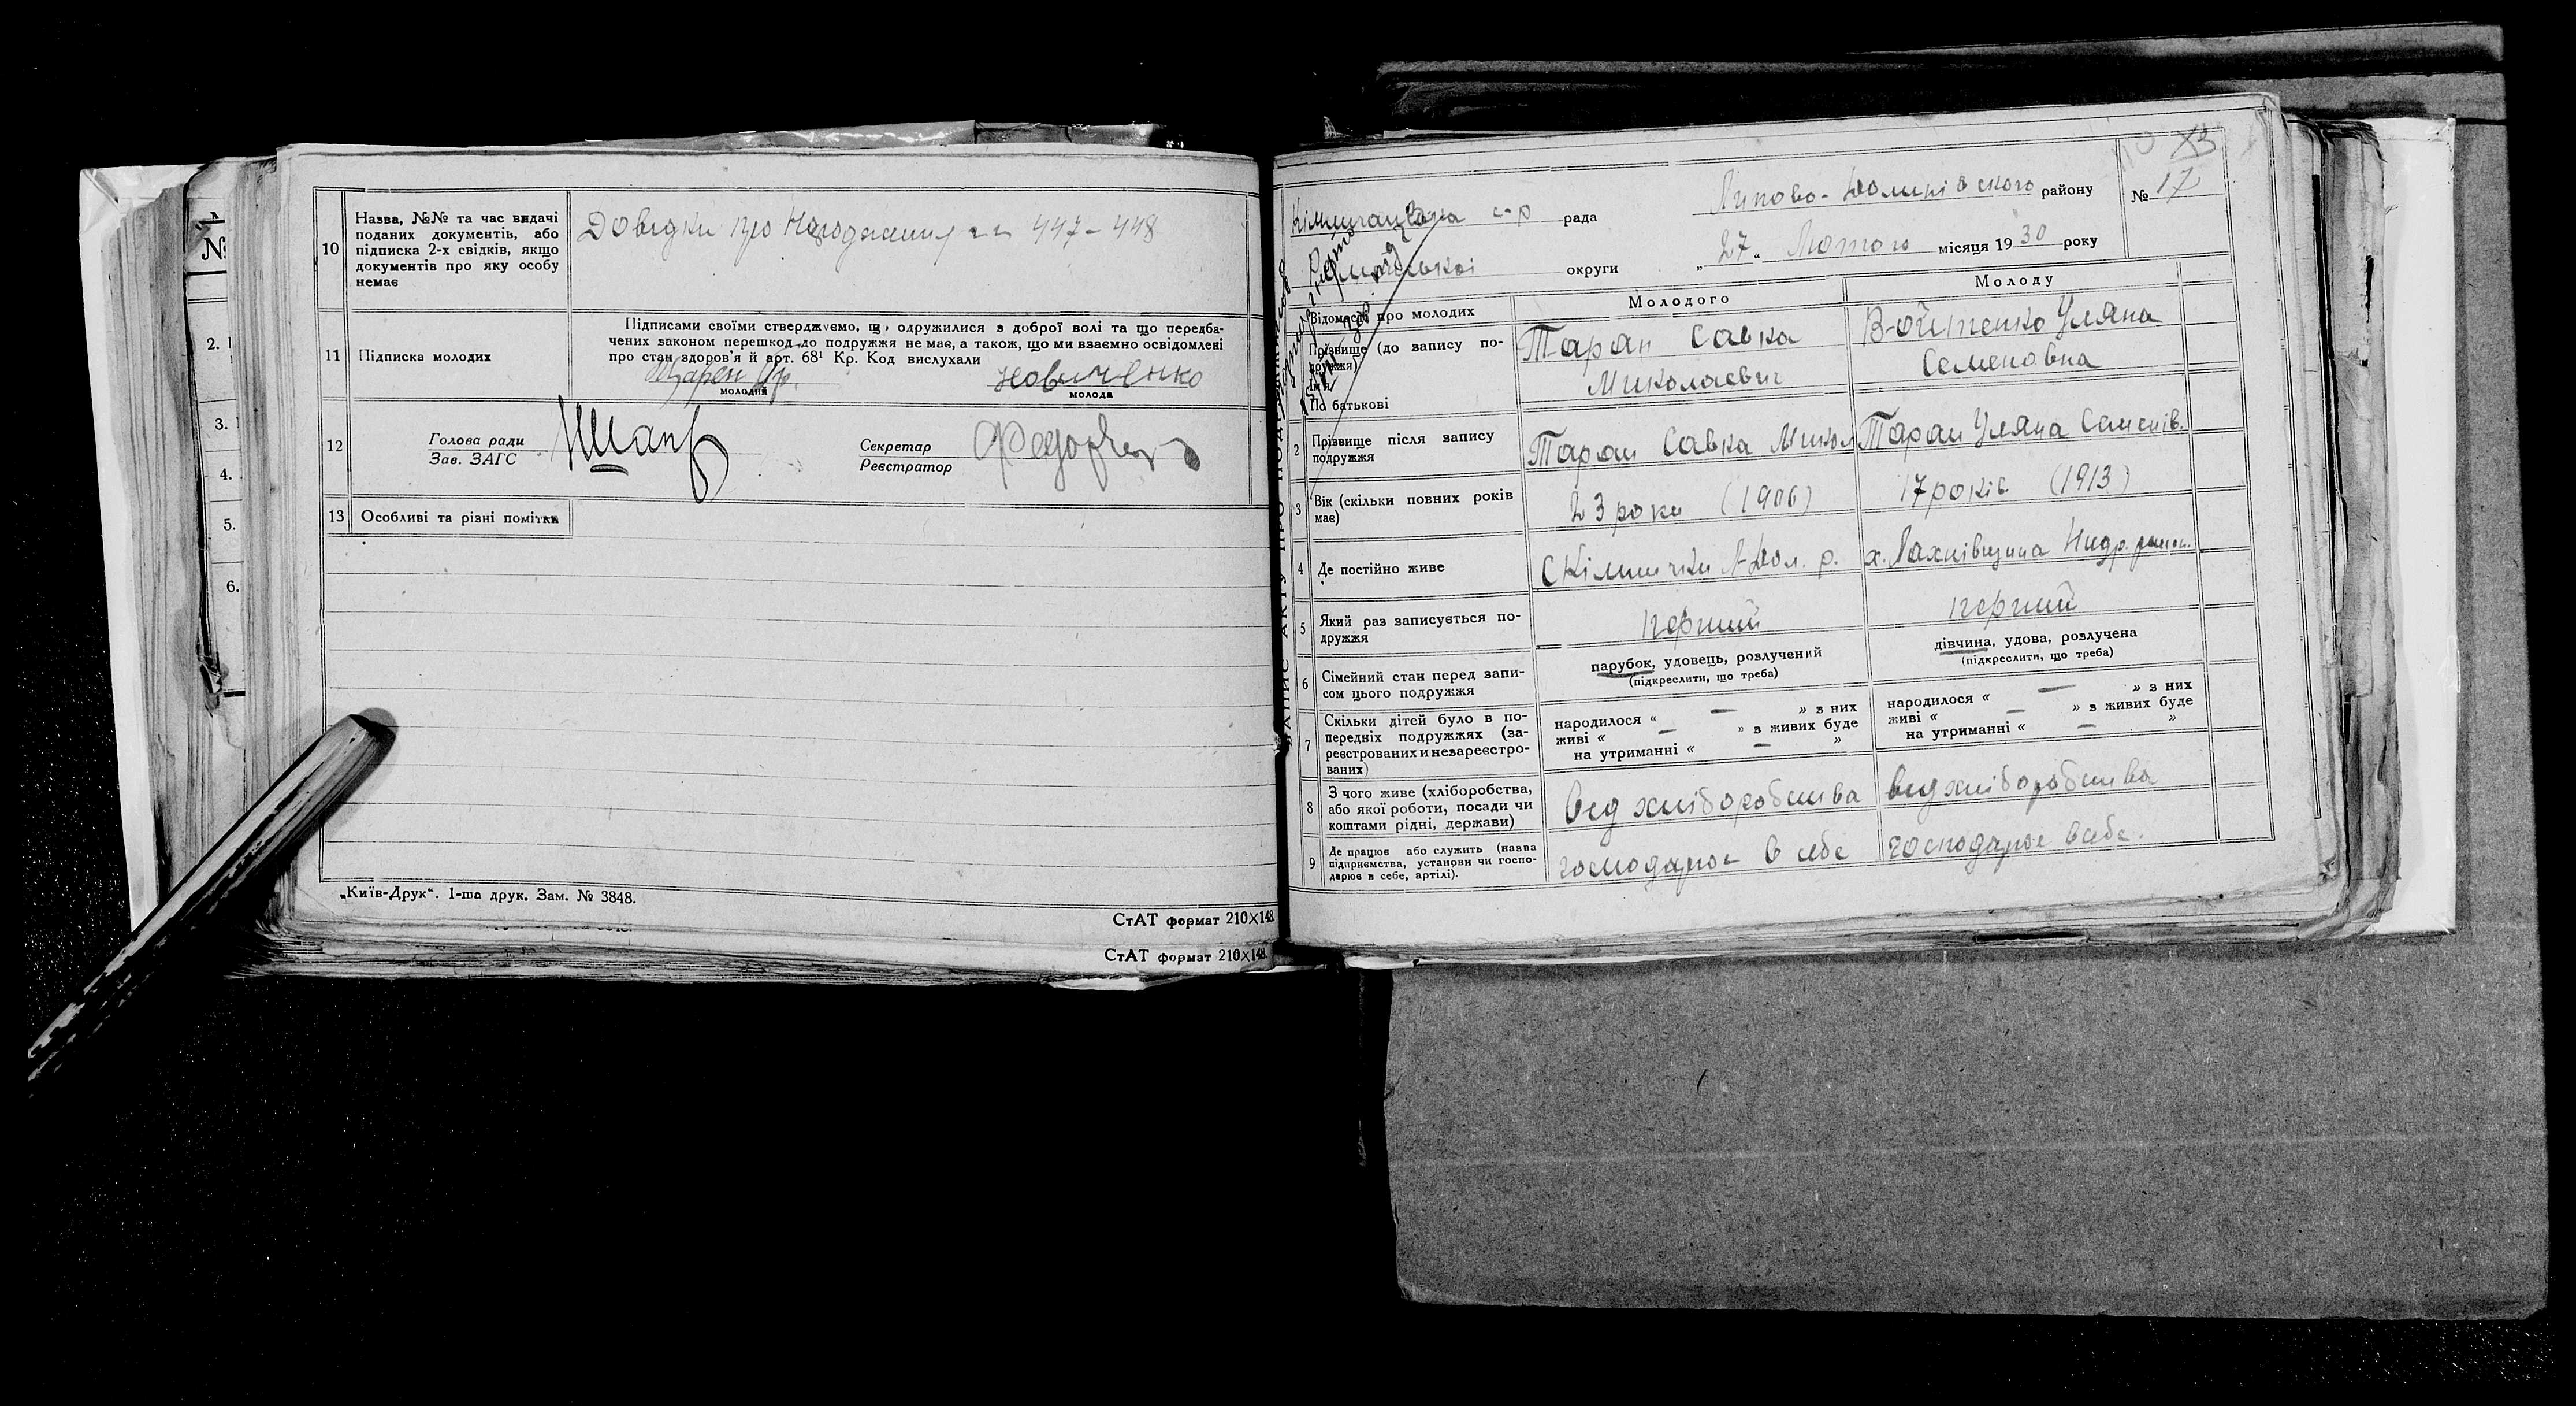 10
Назва, №№ та час видачі
поданих документів, або
підписка 2-х свідків, якщо
документів про яку особу
немає
Довідки про Народження 447-448
11
Підписка молодих
Підписами своїми стверджуємо, що одружилися з доброї волі та що передба-
чених законом перешкод до подружжя не має, а також, що ми взаємно освідомлені
про стан здоров'я й арт. 68¹ Кр. Код вислухали
молодий
Новиченко
молода
12
Голова ради
Зав. ЗАГС
Секретар
Реєстратор
13
Особливі та різні помітки
„Київ-Друк“. 1-ша друк. Зам. № 3848.
СтАТ формат 210×148.
СтАТ формат 210×148.
№
2.
3.
4.
5.
6.
с-р рада
Липово-Долинівского району
№ 17
округи
„27“ Лютого місяця 1930 року
Відомості про молодих
Молодого
Молоду
Прізвище (до запису по-
дружжя)
Ім'я
По батькові
Таран Савка
Миколаєвич
Войтенко Уляна
Семеновна
2
Прізвище після запису
подружжя
Таран Савка Микол
Таран Уляна Семенів.
3
Вік (скільки повних років
має)
23 роки (1906)
17 років (1913)
4
Де постійно живе
С Кімлички Л-Дол. р.
х. Лахнівщина
5
Який раз записується по-
дружжя
перший
перший
6
Сімейний стан перед запи-
сом цього подружжя
парубок, удовець, розлучений
(підкреслити, що треба)
дівчина, удова, розлучена
(підкреслити, що треба)
7
Скільки дітей було в по-
передніх подружжях (за-
реєстрованих и незареєстро-
ваних)
народилося « — » з них
живі « — » в живих буде
на утриманні « — »
народилося « — » з них
живі « — » в живих буде
на утриманні « — »
8
З чого живе (хліборобства,
або якої роботи, посади чи
коштами рідні, держави)
від хліборобства
від хліборобства
9
Де працює або служить (назва
підприємства, установи чи госпо-
дарює в себе, артілі).
господарює в себе
господарює в себе.